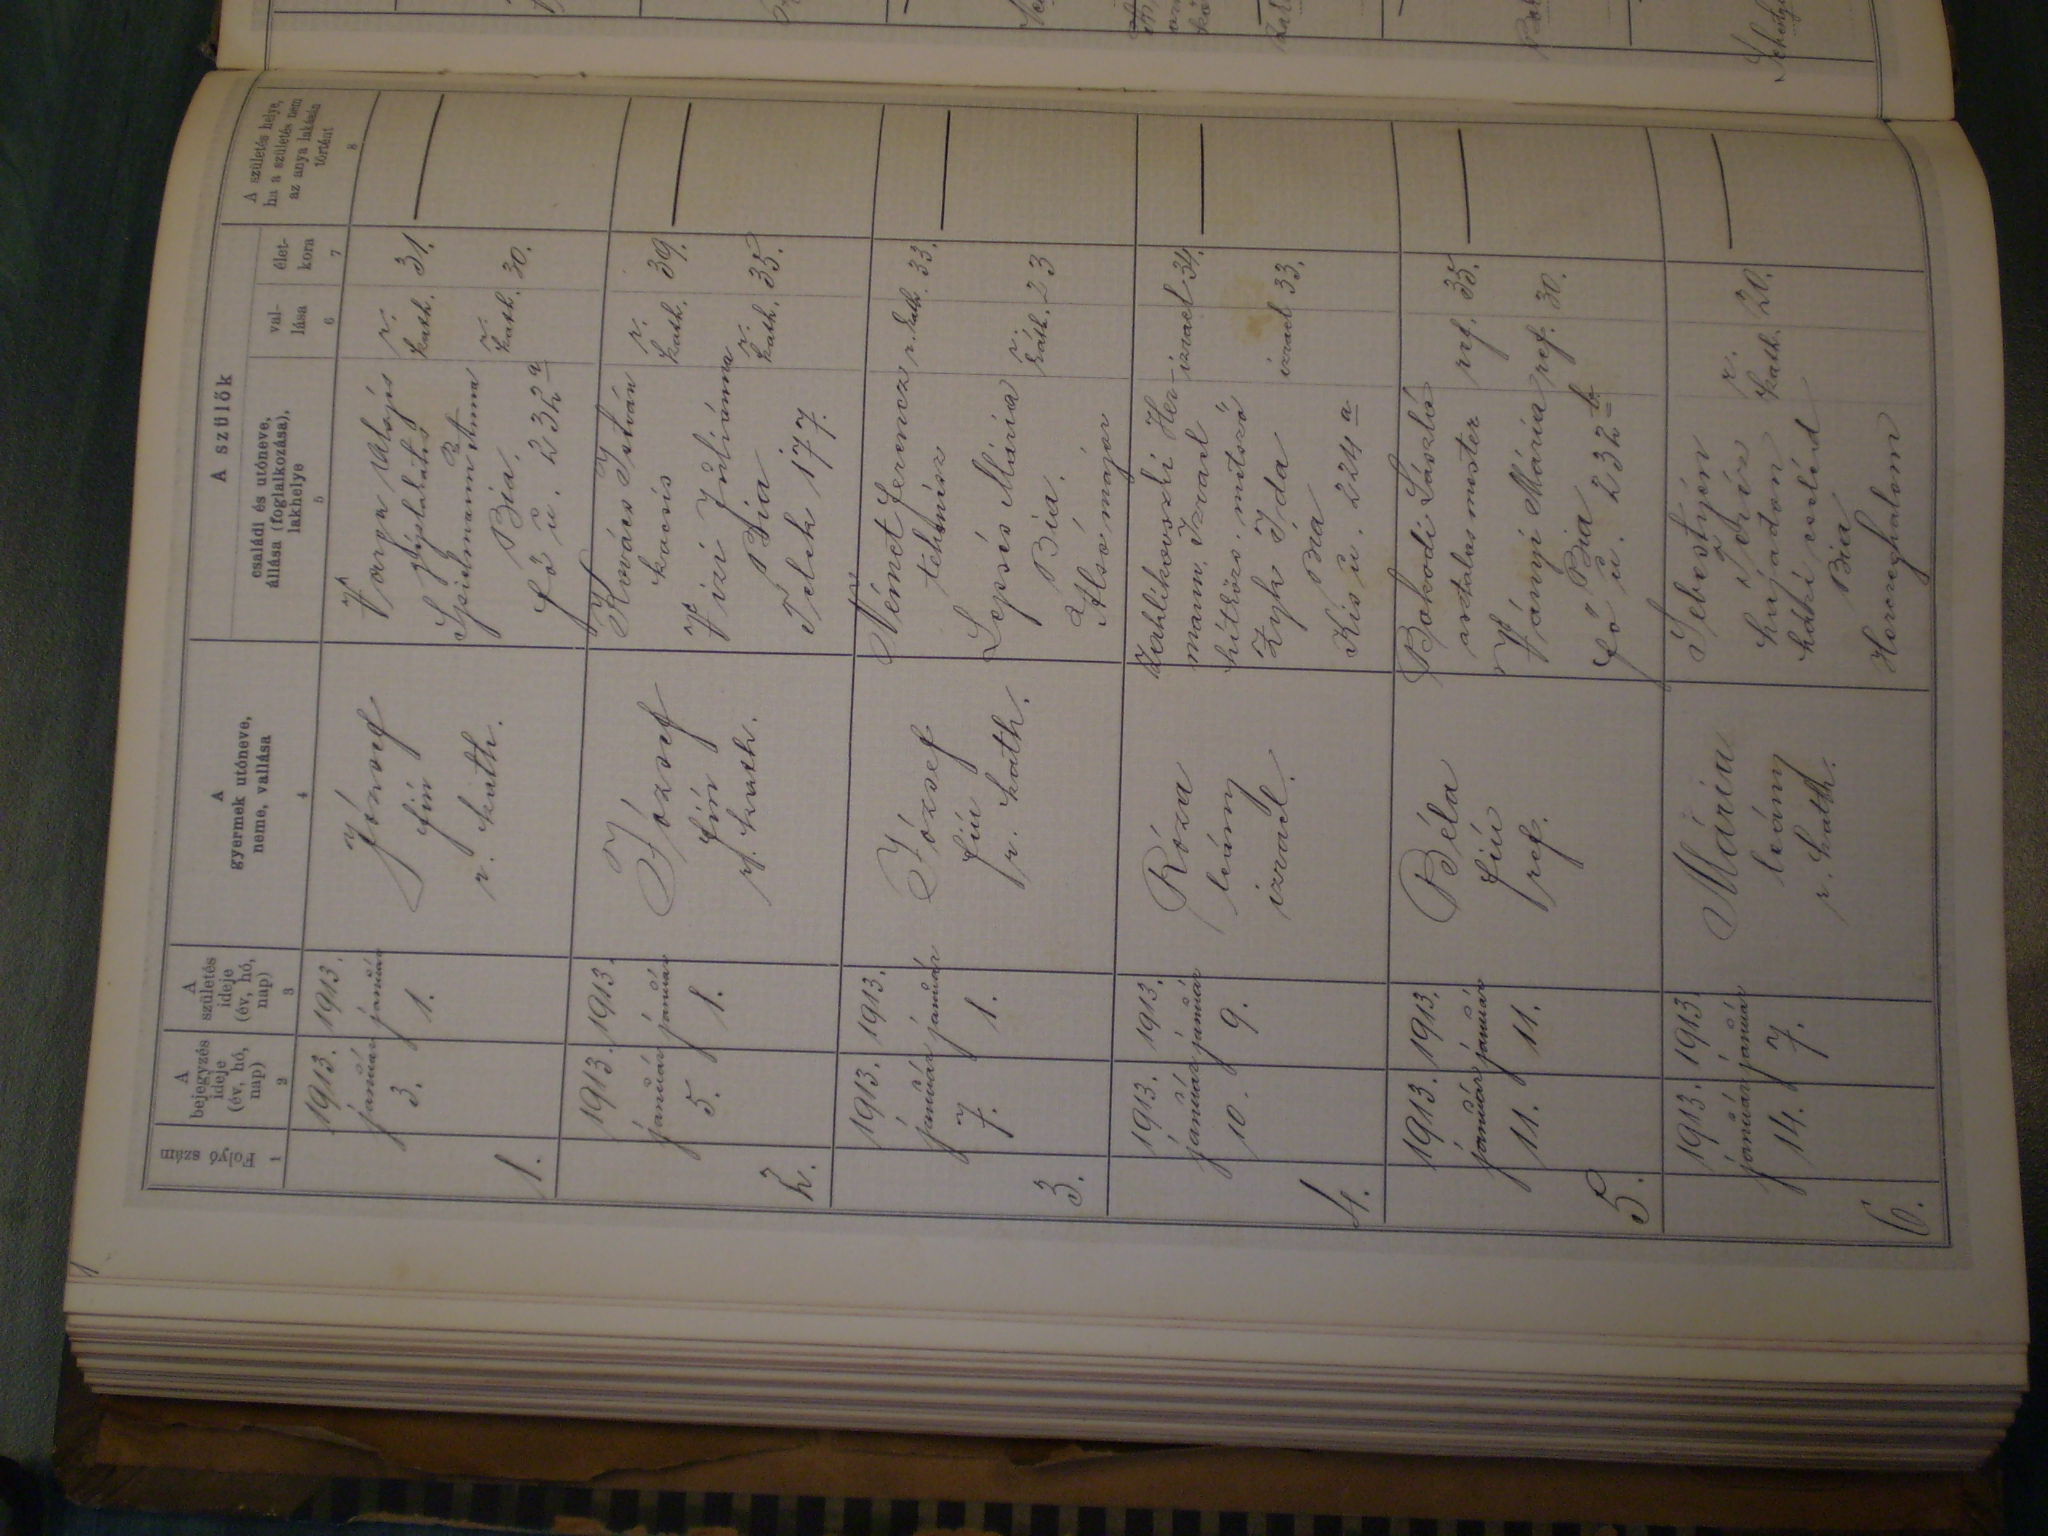 A szülők
Folyó szám
A bejegyzés ideje (év, hó, nap)
A születés ideje (év, hó, nap)
A gyermek utóneve, neme, vallása
családi és utóneve, állása (foglalkozása), lakhelye
val-lása
élet-kora
A születés helye, ha a születés nem az anya lakásán történt
1 2 3 4 5 6 7 8
1.
1913. január 3.
1913. január 1.
József
fiú
r. kath.
Varga Alajos
r. kath. 31.
Spielmann Anna
r. kath. 30.
Bia.
Fő u. 232 a
2.
1913. január 5.
1913. január 1.
József
fiú
r. kath.
Kovács István
r. kath. 39.
kocsis
Vizi Juliánna
r. kath. 35.
Bia
Telek 177.
3.
1913. január 7.
1913. január 1.
József
fiú
r. kath.
Német Ferencz
r. kath. 33.
tehenész
Lepsés Mária
r. kath. 23
Bia.
Alsó major
4.
1913. január 10.
1913. január 9.
Róza
leány
izrael.
Her-
mann Izrael
izrael 34.
hitközs. metsző
Ida
izrael 33.
Bia
Kis u. 224 a
5.
1913. január 11.
1913. január 11.
Béla
fiú
ref.
Bokodi László
ref. 35.
asztalos mester
Ványi Mária
ref. 30.
Bia
Fő u. 232 b
6.
1913. január 14.
1913. január 7.
Mária
leány
r. kath.
Sebestyén
Teréz
r. kath. 20.
hajadon
házi cseléd
Bia
Herczeghalom